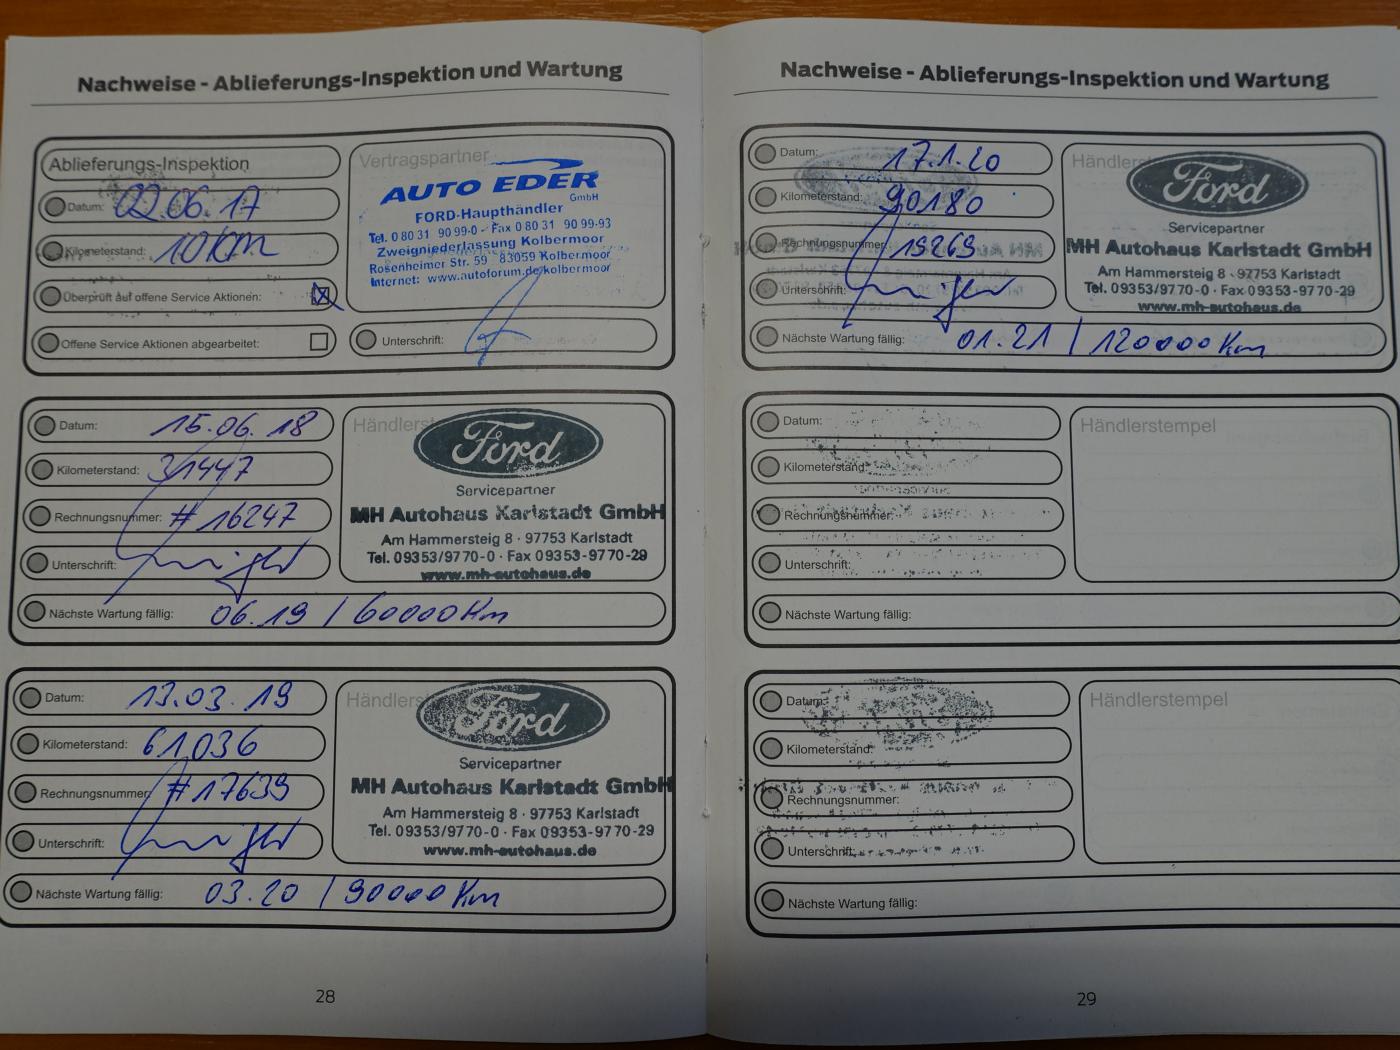 Nachweise - Ablieferungs-Inspektion und Wartung
Ablieferungs-Inspektion
Datum: 02.06.17
Kilometerstand: 10 km
Überprüft auf offene Service Aktionen:
Offene Service Aktionen abgearbeitet:
Vertragspartner
AUTO EDER
GmbH
FORD-Haupthändler
Tel. 0 80 31 90 99-0 - Fax 0 80 31 90 99-93
Zweigniederlassung Kolbermoor
Rosenheimer Str. 59 83059 Kolbermoor
Internet: www.autoforum.de/kolbermoor
Unterschrift:
Datum: 15.06.18
Kilometerstand: 31447
Rechnungsnummer: # 16247
Unterschrift:
Nächste Wartung fällig: 06.19 / 60000 Km
Ford
Servicepartner
MH Autohaus Karlstadt GmbH
Am Hammersteig 8 · 97753 Karlstadt
Tel. 09353/9770-0 · Fax 09353-9770-29
www.mh-autohaus.de
Datum: 13.03.19
Kilometerstand: 61.036
Rechnungsnummer: # 17639
Unterschrift:
Nächste Wartung fällig: 03.20 / 90000 Km
Ford
Servicepartner
MH Autohaus Karlstadt GmbH
Am Hammersteig 8 · 97753 Karlstadt
Tel. 09353/9770-0 · Fax 09353-9770-29
www.mh-autohaus.de
28
Nachweise - Ablieferungs-Inspektion und Wartung
Datum: 17.1.20
Kilometerstand: 90180
Rechnungsnummer: 19269
Unterschrift:
Nächste Wartung fällig: 01.21 / 120000 Km
Ford
Servicepartner
MH Autohaus Karlstadt GmbH
Am Hammersteig 8 · 97753 Karlstadt
Tel. 09353/9770-0 · Fax 09353-9770-29
www.mh-autohaus.de
Datum:
Kilometerstand:
Rechnungsnummer:
Unterschrift:
Nächste Wartung fällig:
Händlerstempel
Datum:
Kilometerstand:
Rechnungsnummer:
Unterschrift:
Nächste Wartung fällig:
Händlerstempel
29